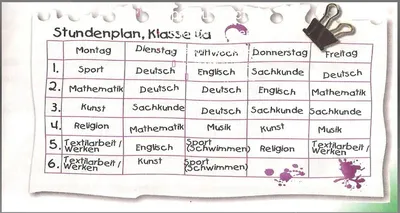 Stundenplan, Klasse
Montag Dienstag Mittwoch Donnerstag Freitag
1. Sport Deutsch Englisch Sachkunde Deutsch
2. Mathematik Deutsch Deutsch Englisch Mathematik
3. Kunst Sachkunde Deutsch Sachkunde Sachkunde
4. Religion Mathematik Musik Kunst Musik
5. Textilarbeit / Werken Englisch Sport (Schwimmen) Religion Textilarbeit / Werken
6. Textilarbeit / Werken Kunst Sport (Schwimmen)